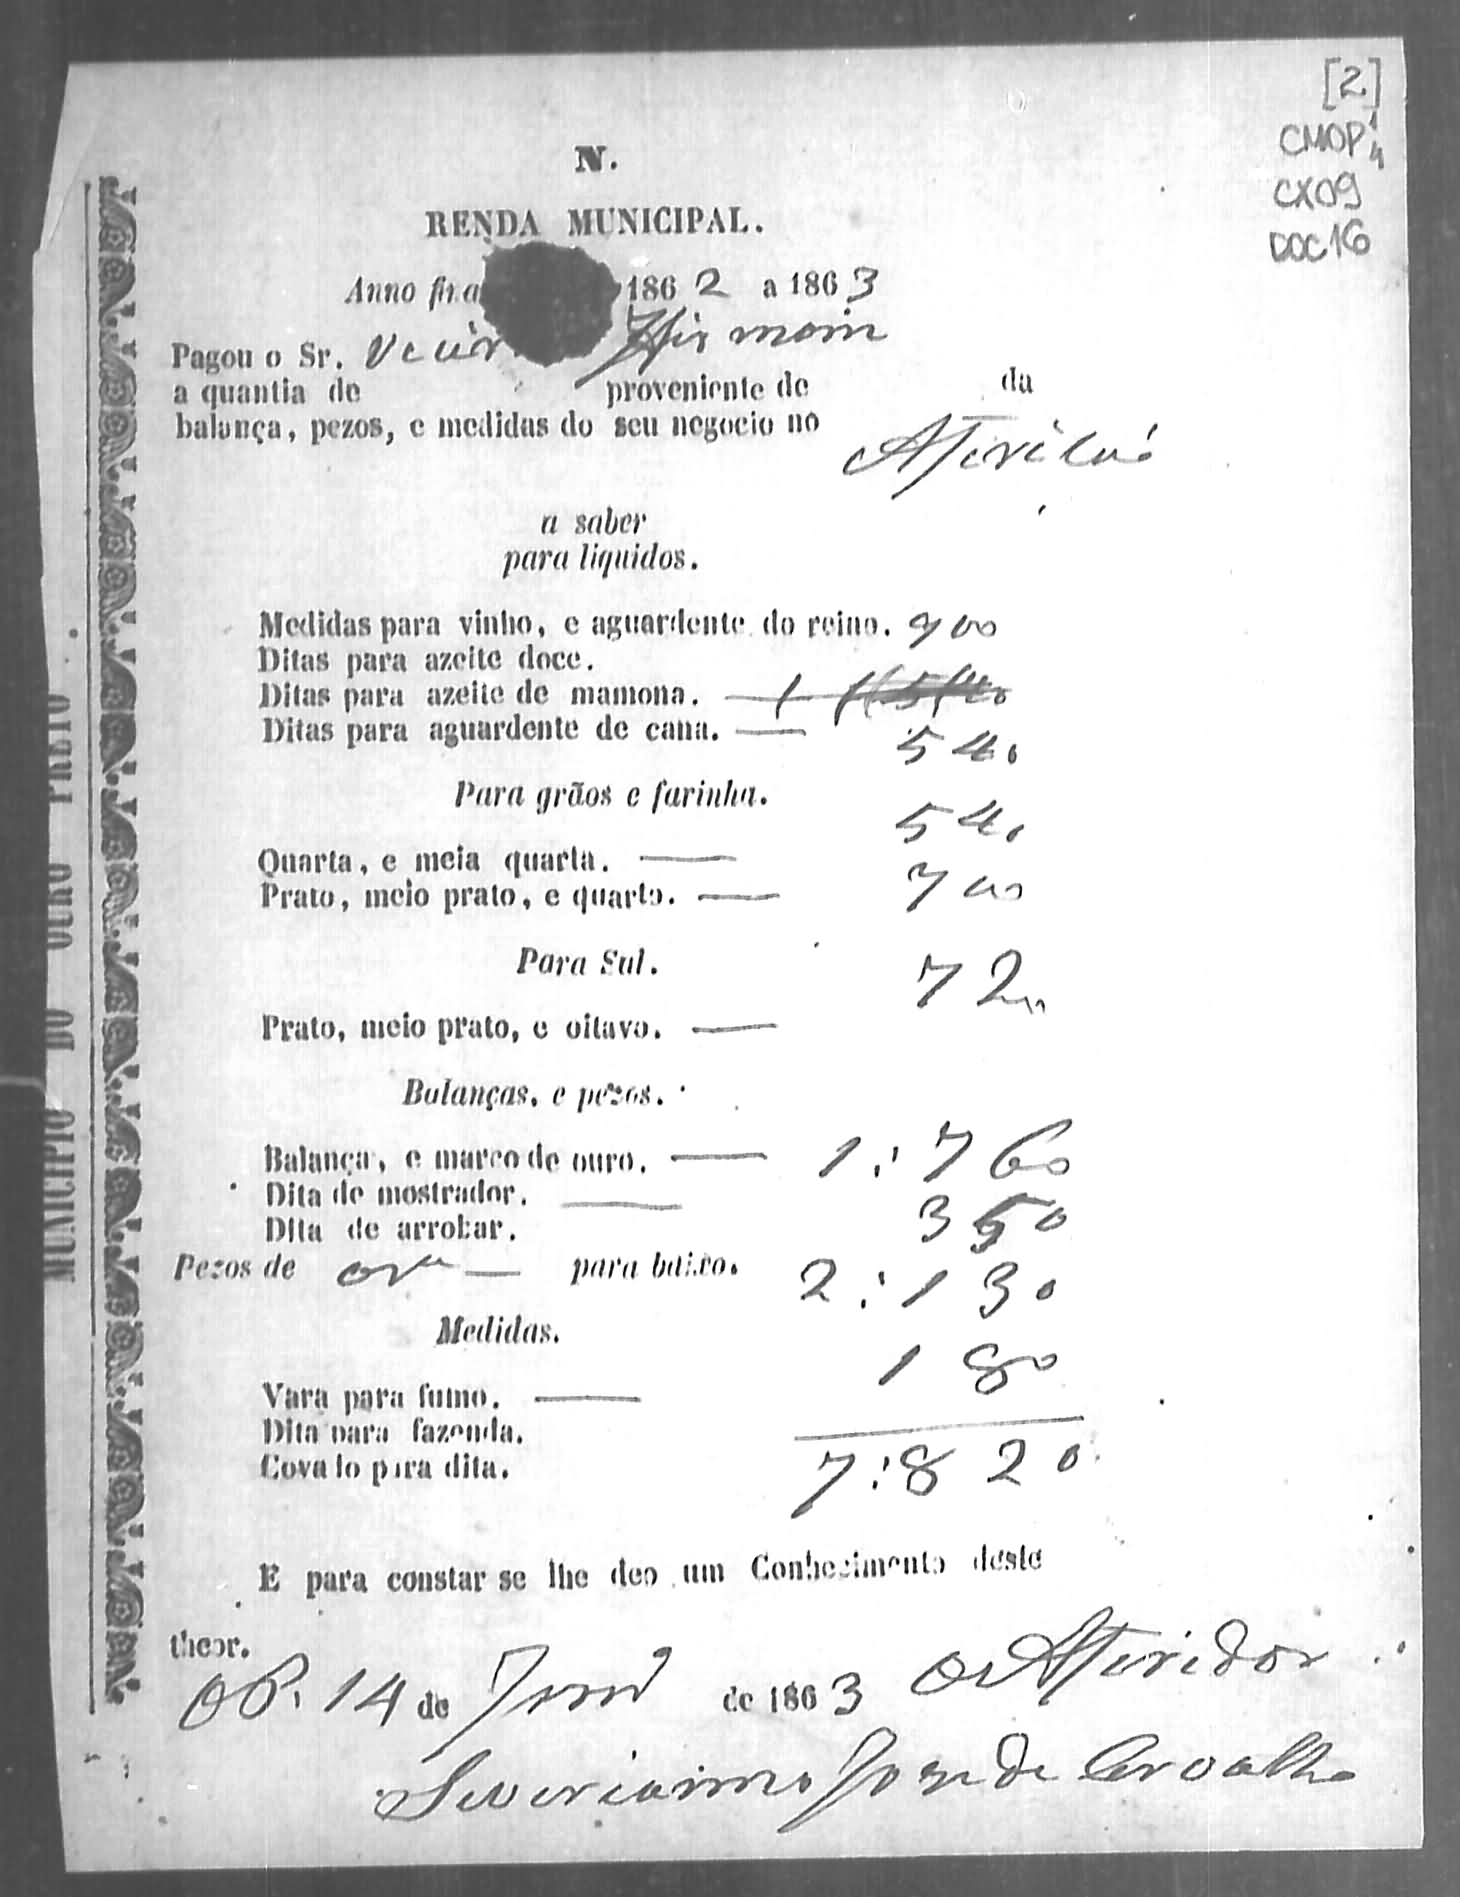 [2]
CMOP 1/4
CX09
DOC16
N.
RENDA MUNICIPAL.
Anno fina 1862 a 1863
Pagou o Sr.
a quantia de proveniente de da
balança, pezos, e medidas do seu negocio no
a saber
para liquidos.
Medidas para vinho, e aguardente do reino. 700
Ditas para azeite doce.
Ditas para azeite de mamona. —
Ditas para aguardente de cana. — 540
Para grãos e farinha.
540
Quarta, e meia quarta. —
Prato, meio prato, e quarto. — 700
Para Sal.
720
Prato, meio prato, e oitavo. —
Balanças, e pezos.
Balança, e marco de ouro. — 1:760
Dita de mostrador. — 350
Dita de arrobar.
Pezos de — para baixo. 2:130
Medidas.
180
Vara para fumo. —
Dita para fazenda.
Covado para dita. 7:820
E para constar se lhe deo um Conhecimento deste
theor.
OP. 14 de de 1863 O Aferidor
Severianno Joze de Carvalho
MUNICIPIO DO OURO PRETO